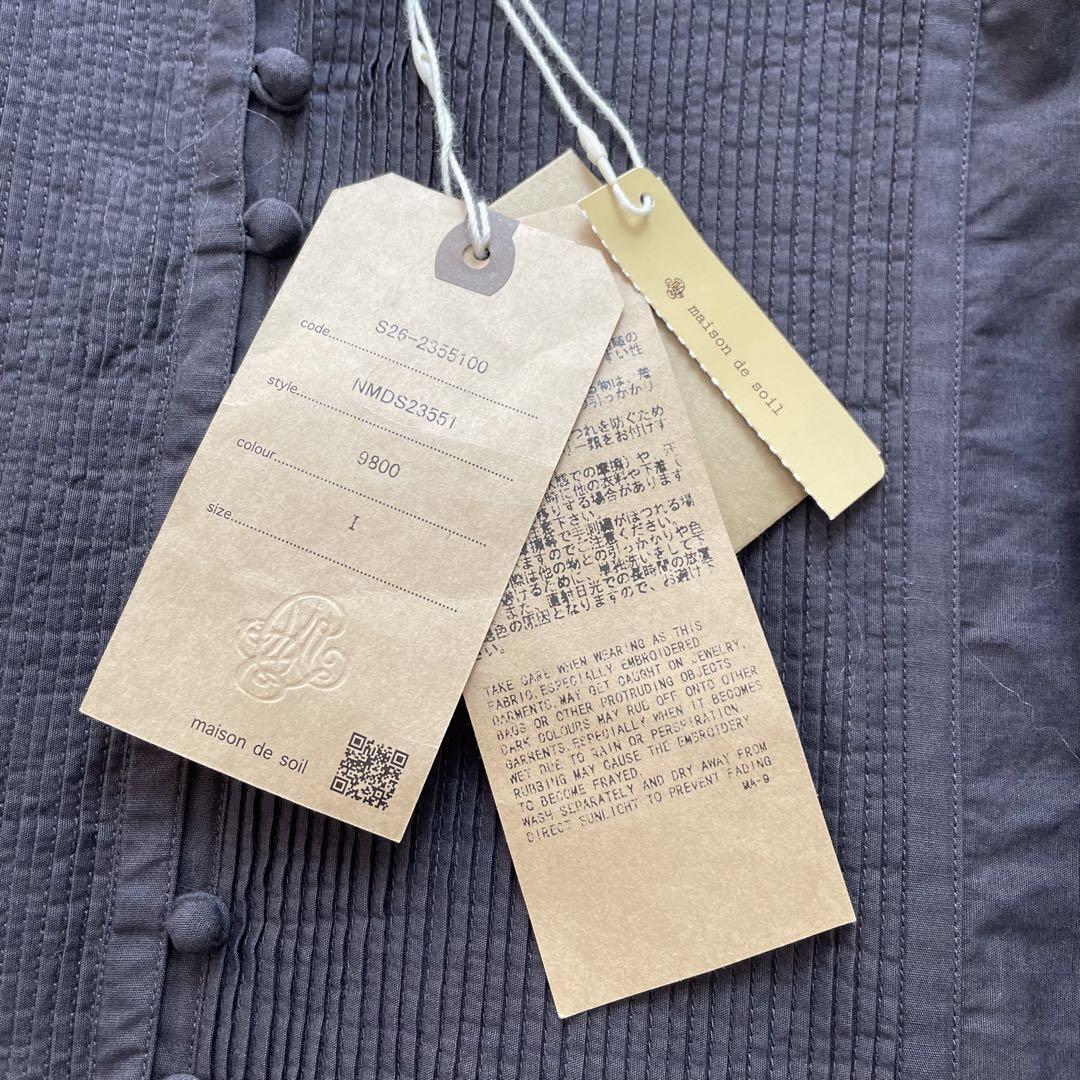 code S26-2355100
style NMDS23551
colour 9800
size I
maison de soil
maison de soil
すい性
物は、着
引っかかり
つれを防ぐため
類をお付けす
態での摩擦）や、汗
時に他の衣料や下着
りする場合があります
下さい。
摩擦で刺繍がほつれる場
ますのでご注意ください。
は他の物との引っかかりや色
けるために、単性洗いをして下
また、直射日光での長時間の放置
色の原因となりますので、お避け下
さい。
TAKE CARE WHEN WEARING AS THIS
FABRIC, ESPECIALLY EMBROIDERED
GARMENTS, MAY GET CAUGHT ON JEWELRY,
BAGS OR OTHER PROTRUDING OBJECTS
DARK COLOURS MAY RUB OFF ONTO OTHER
GARMENTS, ESPECIALLY WHEN IT BECOMES
WET DUE TO RAIN OR PERSPIRATION
RUBBING MAY CAUSE THE EMBROIDERY
TO BECOME FRAYED.
WASH SEPARATELY AND DRY AWAY FROM
DIRECT SUNLIGHT TO PREVENT FADING
MA-9